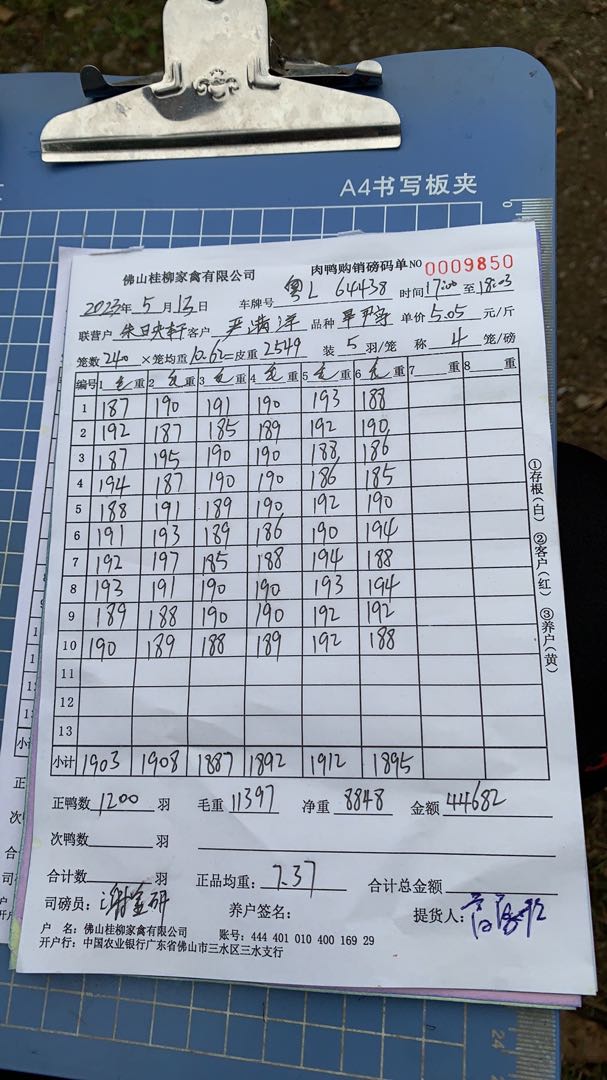 A4书写板夹
佛山桂柳家禽有限公司 肉鸭购销磅码单NO 0009850
2023年5月13日 车牌号 粤L 64438 时间 17:00 至 18:03
联营户 客户 严满洋 品种 单价 5.05 元/斤
笼数 240 ×笼均重 10.62=皮重 2549 装 5 羽/笼 称 4 笼/磅
编号 1 毛 重 2 毛 重 3 毛 重 4 毛 重 5 毛 重 6 毛 重 7 重 8 重
1 187 190 191 190 193 188
2 192 187 185 189 192 190
3 187 195 190 190 188 186
4 194 187 190 190 186 185
5 188 191 189 190 192 190
6 191 193 189 186 190 194
7 192 197 185 188 194 188
8 193 191 190 190 193 194
9 189 188 190 190 192 192
10 190 189 188 189 192 188
11
12
13
小计 1903 1908 1887 1892 1912 1895
①存根(白) ②客户(红) ③养户(黄)
正鸭数 1200 羽 毛重 11397 净重 8848 金额 44682
次鸭数 羽
合计数 羽 正品均重: 7.37 合计总金额
司磅员: 谢金研 养户签名: 提货人:
户 名: 佛山桂柳家禽有限公司 账号: 444 401 010 400 169 29
开户行: 中国农业银行广东省佛山市三水区三水支行
24